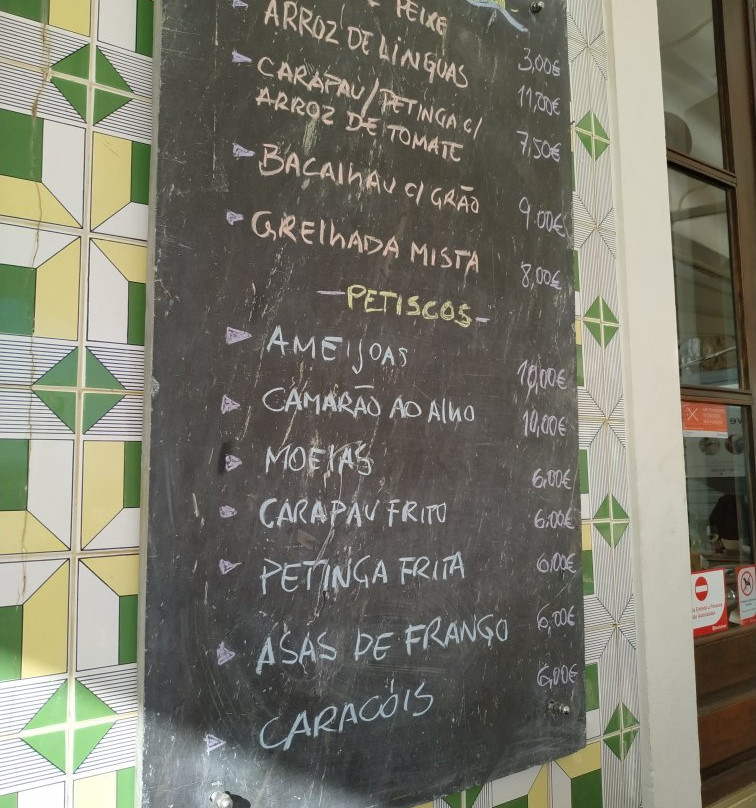 PEIXE
ARROZ DE LÍNGUAS 3,00€
CARAPAU/PETINGA C/ 11,00€
ARROZ DE TOMATE 7,50€
BACALHAU C/ GRÃO 9,00€
GRELHADA MISTA 8,00€
-PETISCOS-
AMEIJOAS 10,00€
CAMARÃO AO ALHO 10,00€
MOELAS 6,00€
CARAPAU FRITO 6,00€
PETINGA FRITA 6,00€
ASAS DE FRANGO 6,00€
CARACÓIS 6,00€